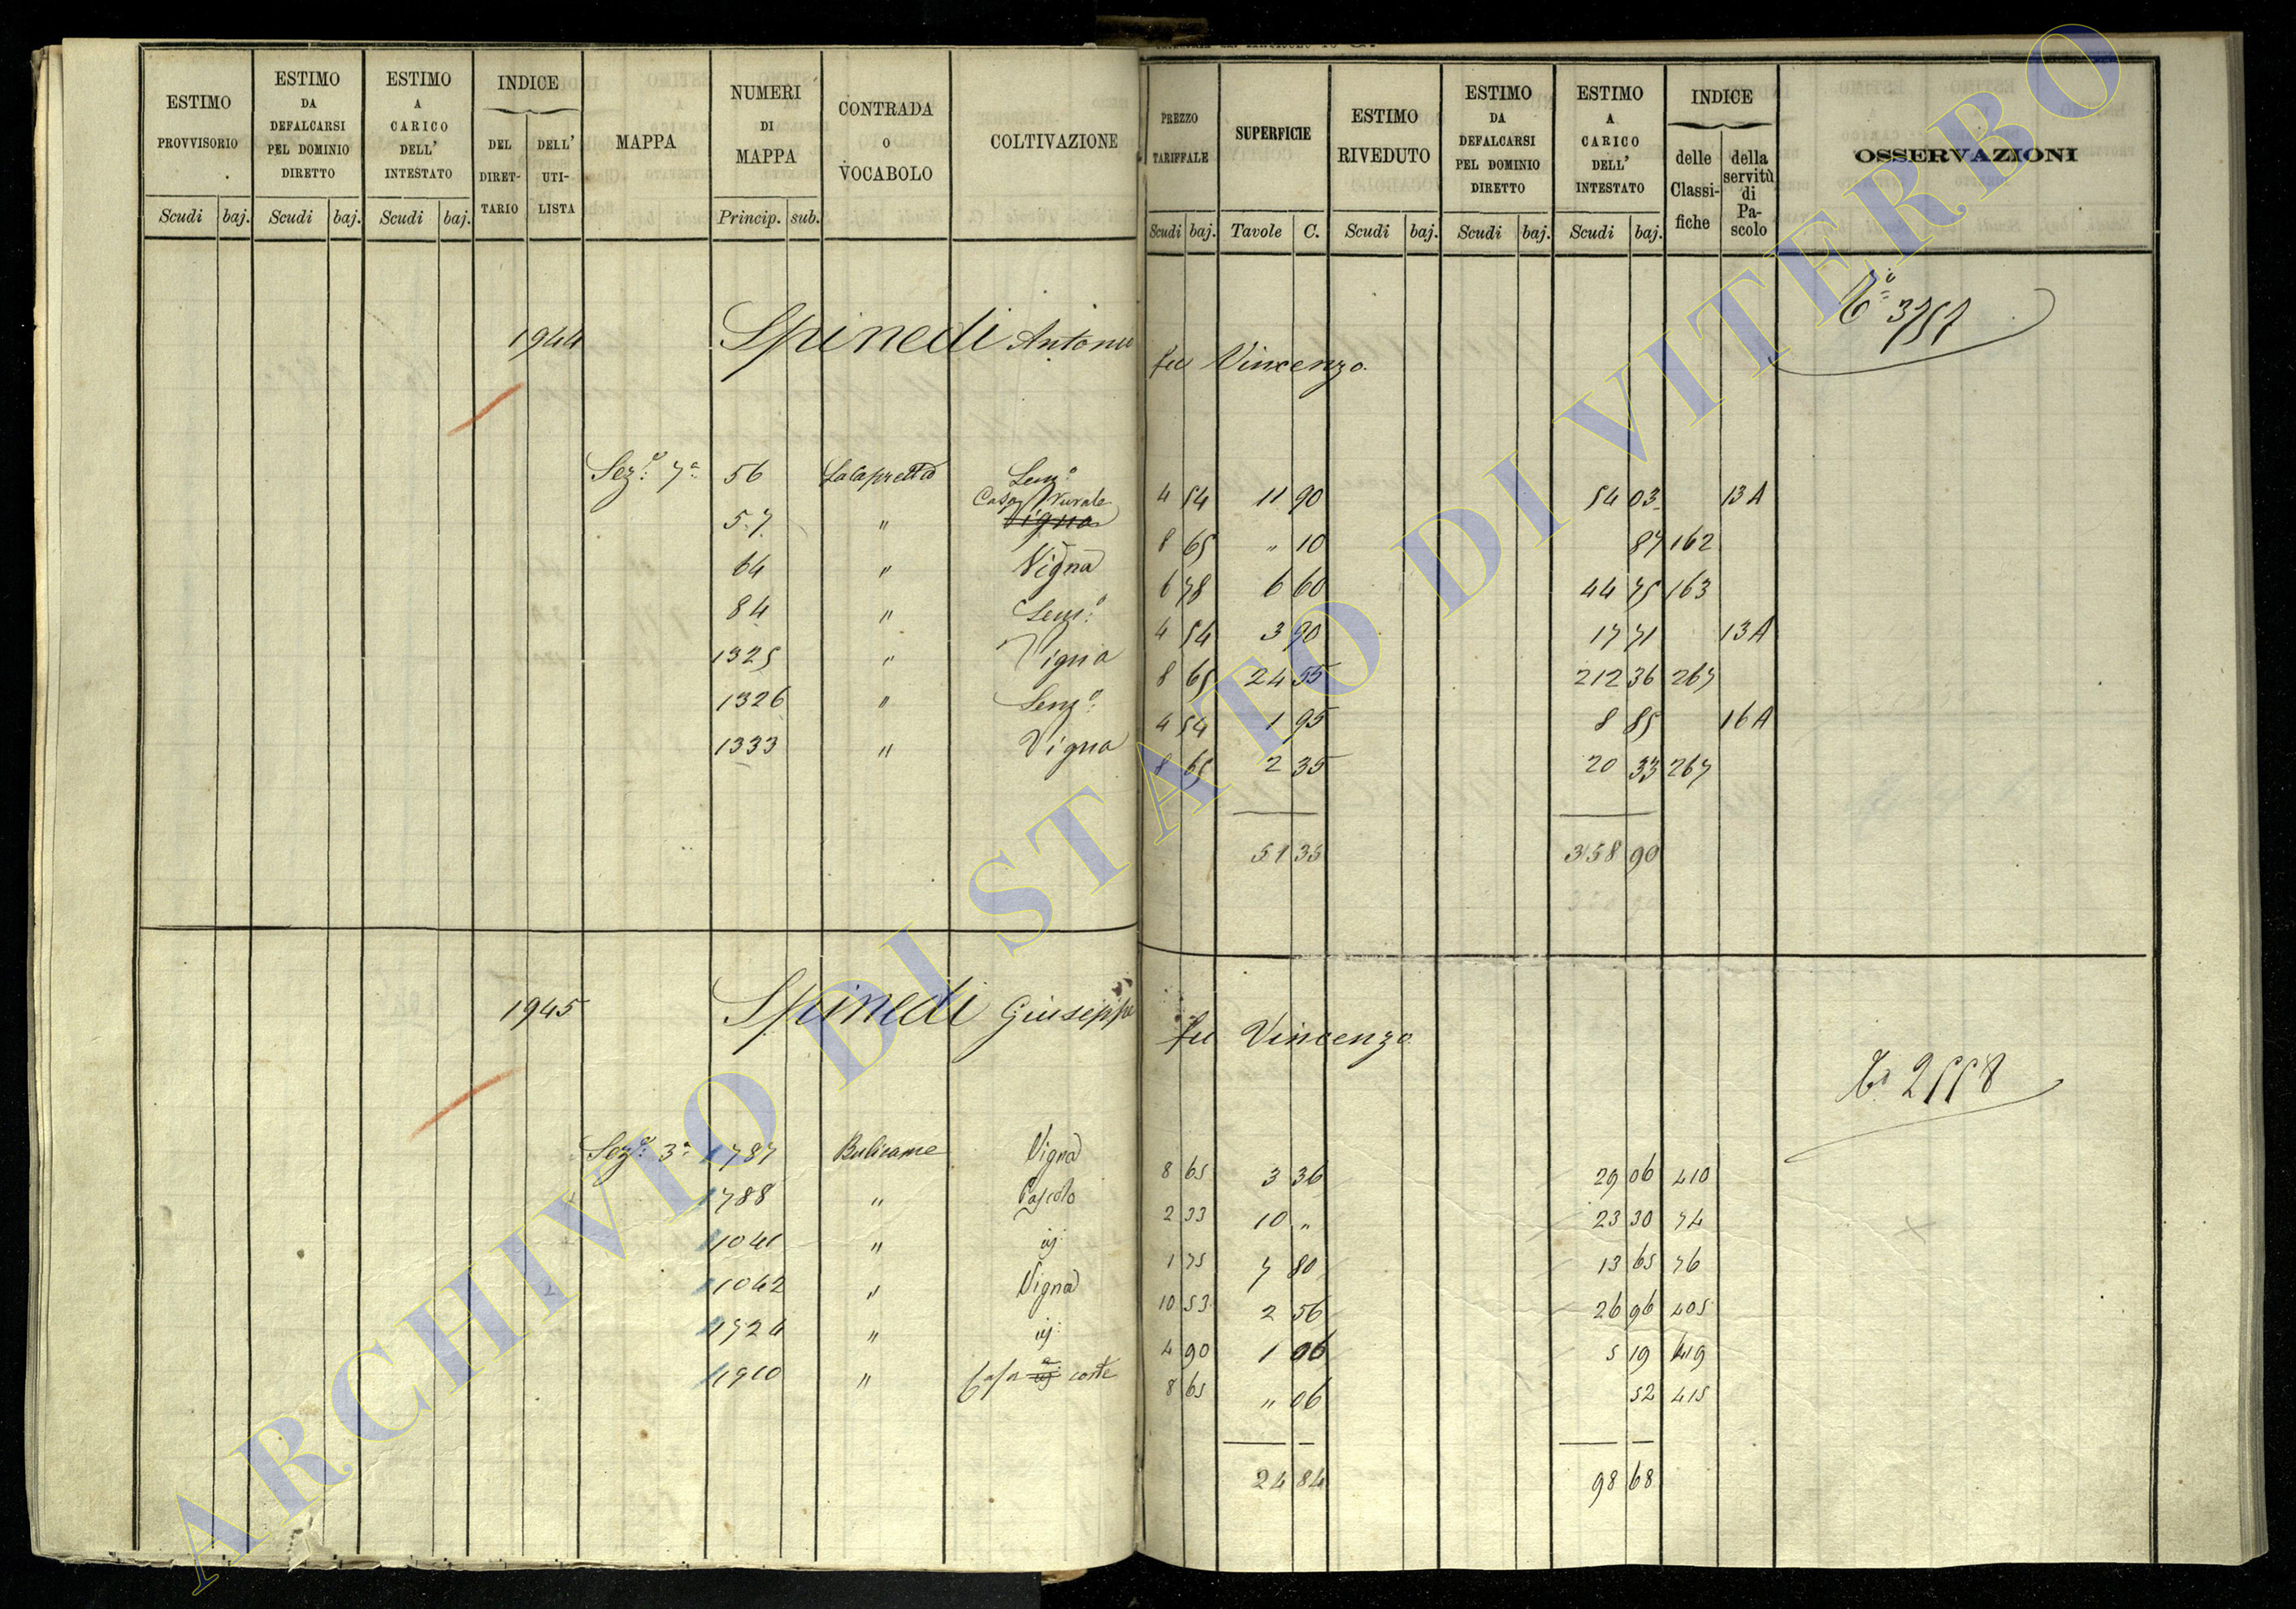 ESTIMO PROVVISORIO | ESTIMO DA DEFALCARSI PEL DOMINIO DIRETTO | ESTIMO A CARICO DELL' INTESTATO | INDICE DEL DIRETTARIO | DELL' UTILISTA | MAPPA | NUMERI DI MAPPA | CONTRADA O VOCABOLO | COLTIVAZIONE | PREZZO TARIFFALE | SUPERFICIE | ESTIMO RIVEDUTO | ESTIMO DA DEFALCARSI PEL DOMINIO DIRETTO | ESTIMO A CARICO DELL' INTESTATO | INDICE delle Classifiche | della servitù di Pascolo | OSSERVAZIONI
Scudi baj. Scudi baj. Scudi baj. Princip. sub. Scudi baj. Tavole C. Scudi baj. Scudi baj. Scudi baj.
1944 Spinedi Antonio fu Vincenzo 3757
Sez.e 7a 56 Lacapretta Sem.o 4 54 11 90 54 03 13 A
57 " Casa Rurale Vigna 8 65 " 10 87 162
64 " Vigna 6 78 6 60 44 75 163
84 " Sem.o 4 54 3 90 17 71 13 A
1325 " Vigna 8 65 24 55 212 36 267
1326 " Sem.o 4 54 1 95 8 85 16 A
1333 " Vigna 8 65 2 35 20 33 267
51 35 358 90
1945 Spinedi Giuseppe fu Vincenzo 2558
Sez.e 3a 1787 Bulicame Vigna 8 65 3 36 29 06 410
1788 " Pascolo 2 33 10 " 23 30 74
1041 " id: 1 75 7 80 13 65 76
1042 " Vigna 10 53 2 56 26 96 405
1724 " id: 4 90 1 06 5 19 419
1910 " Casa corte 8 65 " 06 52 415
24 84 98 68
ARCHIVIO DI STATO DI VITERBO